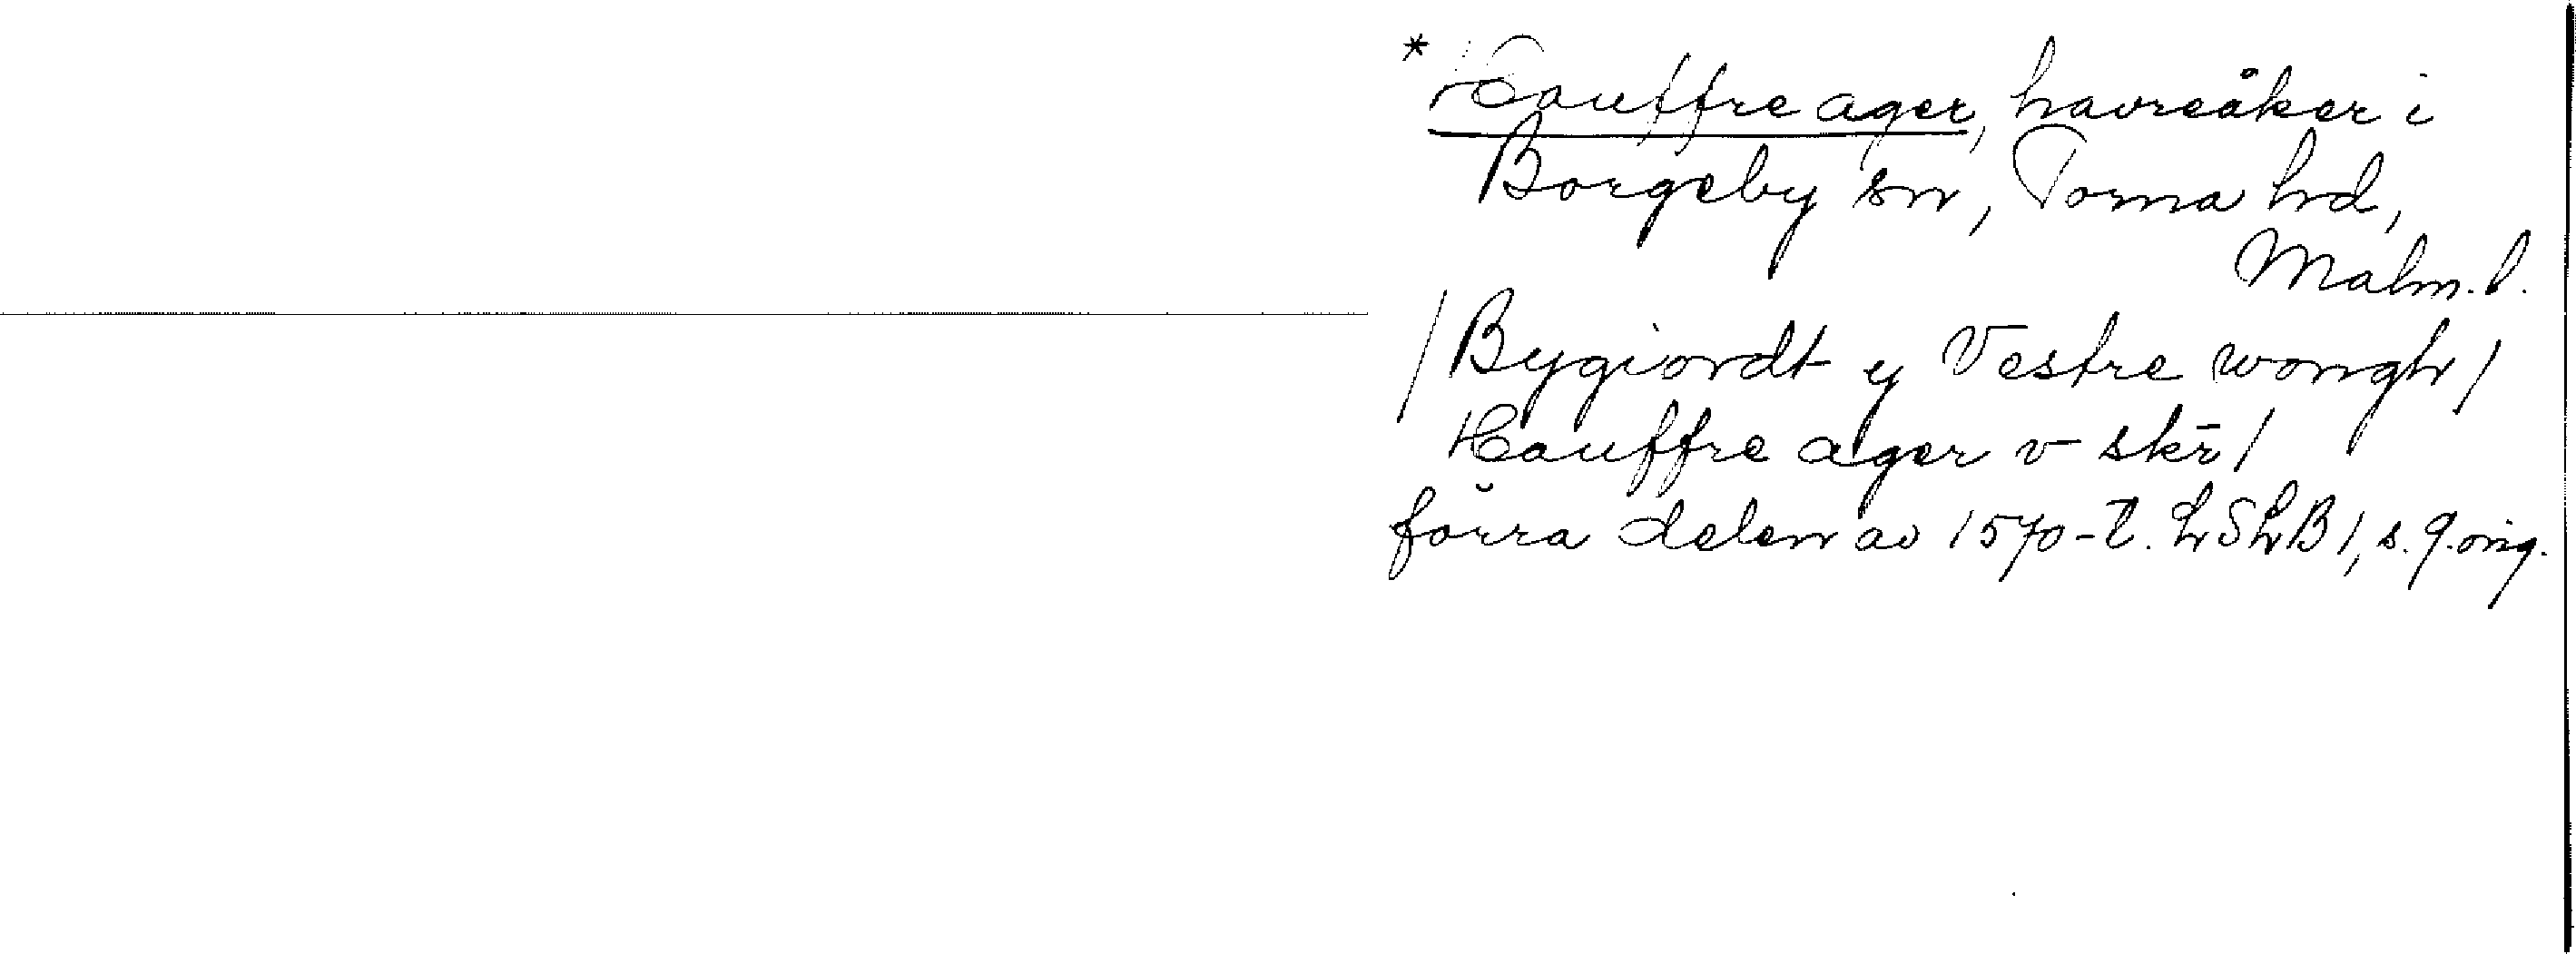 * Hauffre ager, havreåker i
Borgeby sn, Torna hd,
Malm. l.
/Bygiordt y Vestre wongh/
Hauffre ager v skr̄/
förra delen av 1570-t. LSLB 1, s. 9. orig.